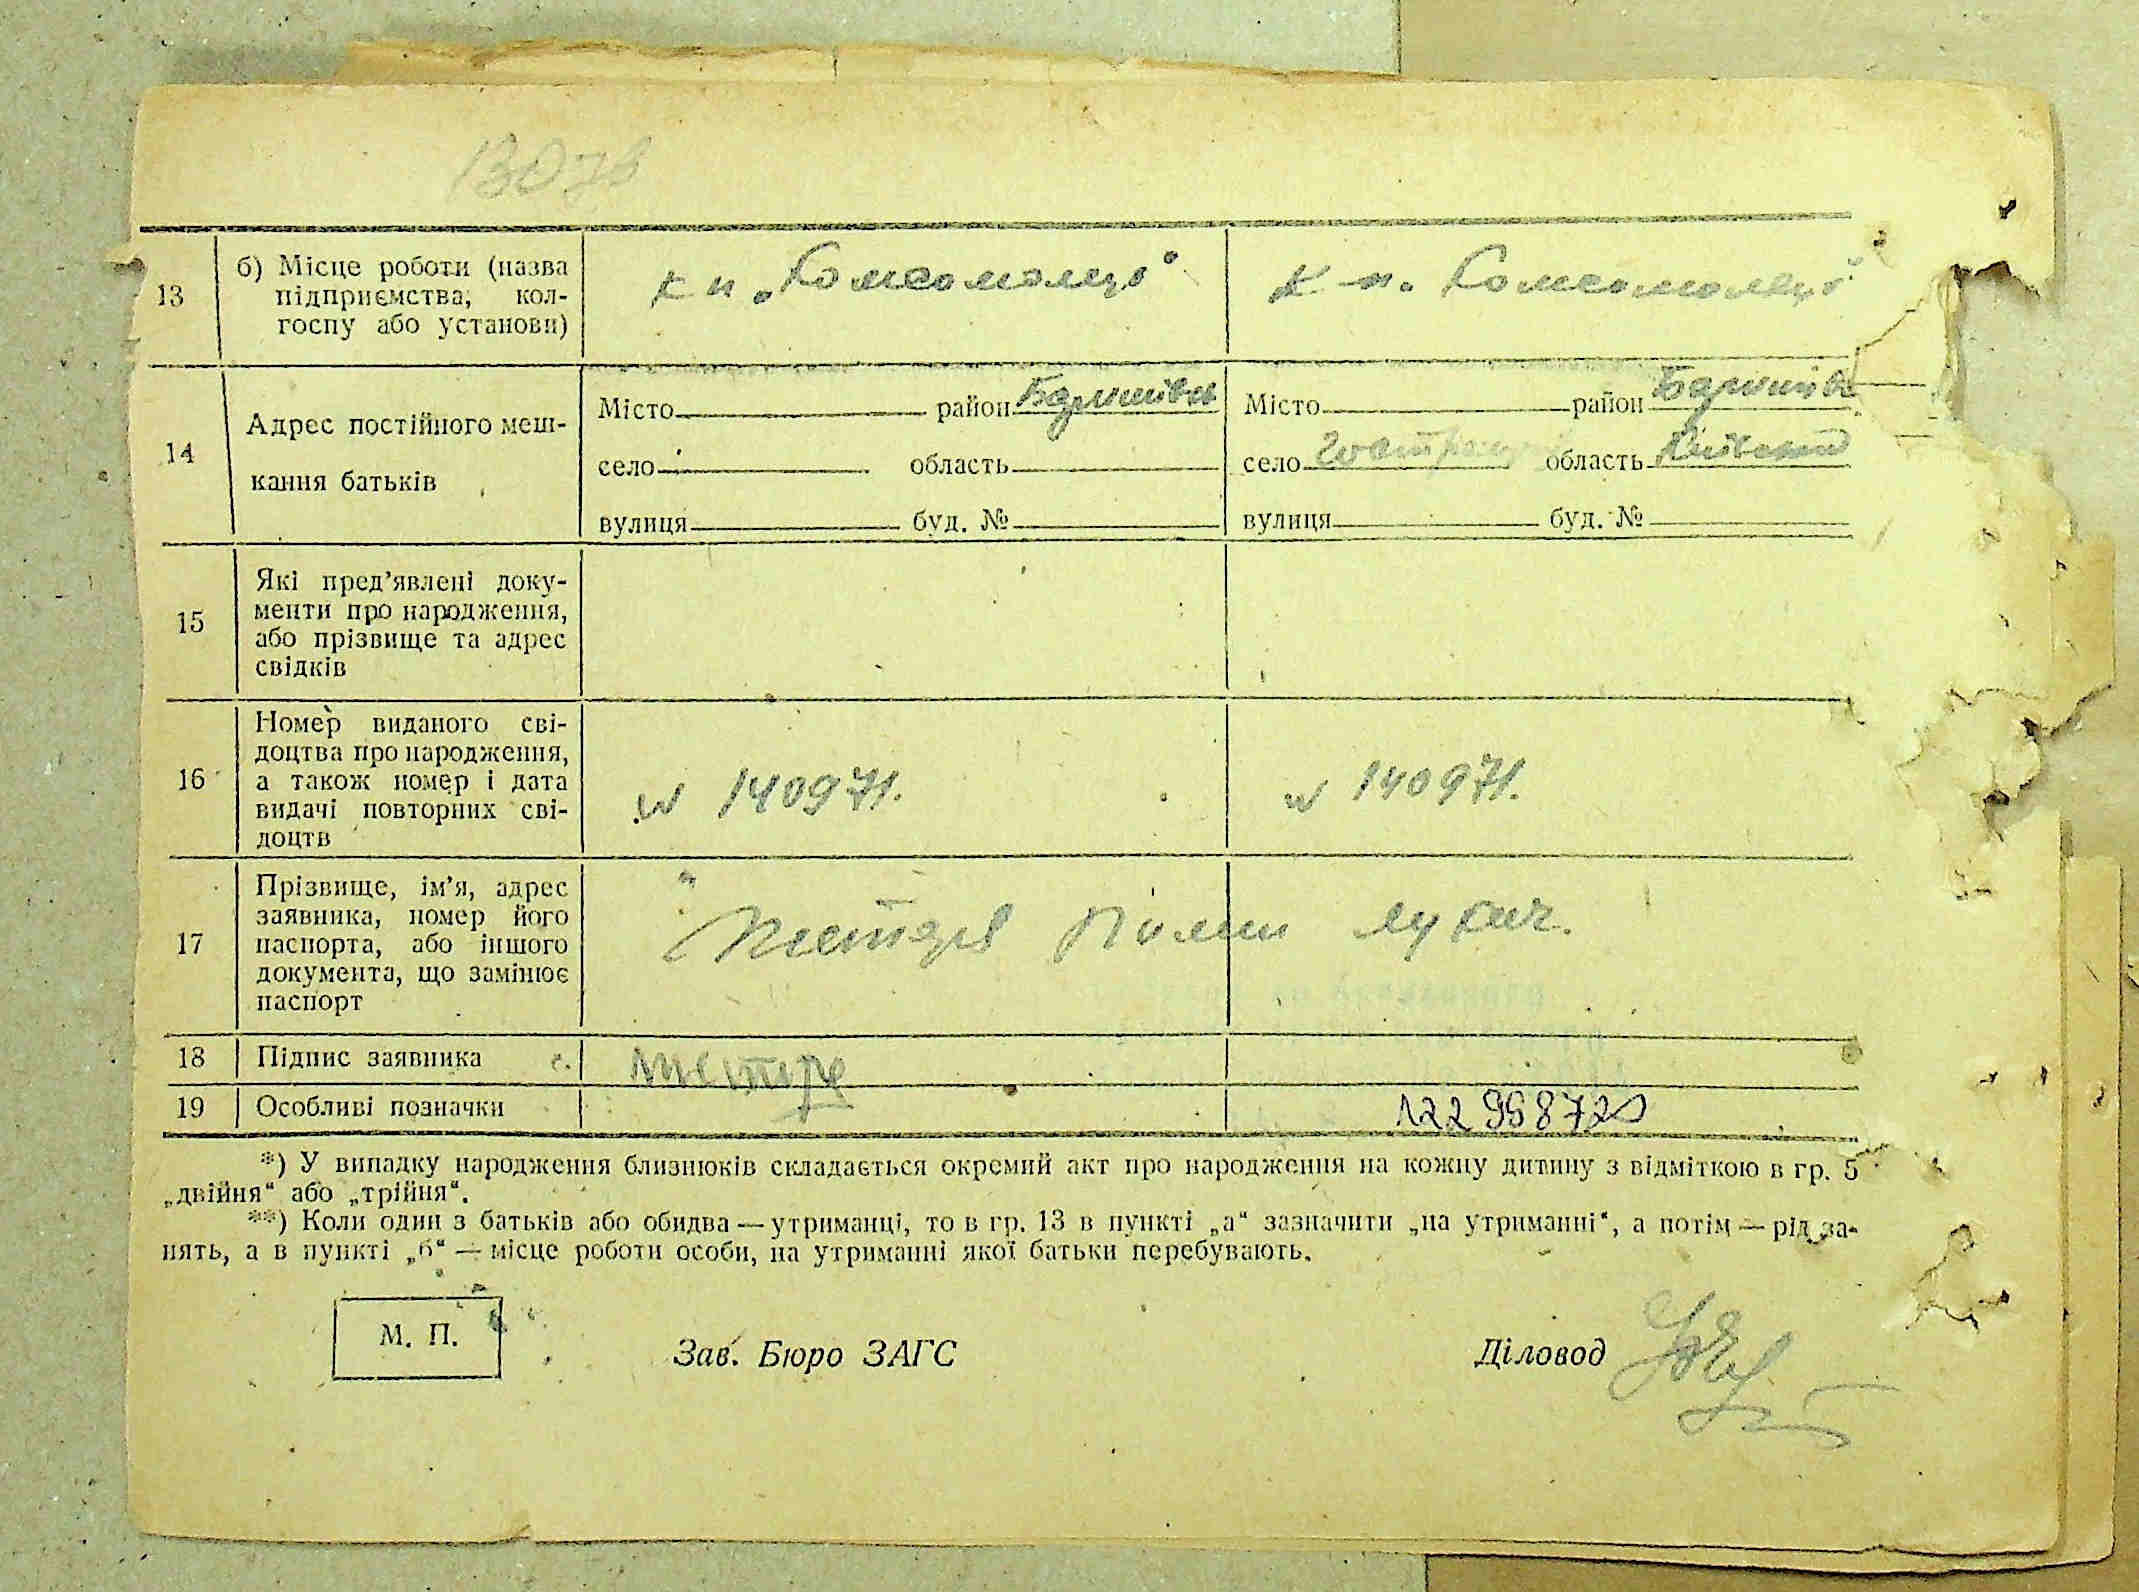 13
б) Місце роботи (назва
підприємства, кол-
госпу або установи)
к и „Комсомолець“
к и. Комсомолець
14
Адрес постійного меш-
кання батьків
Місто район Баришівка
село область
вулиця буд. №
Місто район Баришівк
село область Київська
вулиця буд. №
15
Які пред’явлені доку-
менти про народження,
або прізвище та адрес
свідків
16
Номер виданого сві-
доцтва про народження,
а також номер і дата
видачі повторних сві-
доцтв
№ 140971.
№ 140971.
17
Прізвище, ім’я, адрес
заявника, номер його
паспорта, або іншого
документа, що замінює
паспорт
18
Підпис заявника
19
Особливі позначки
*) У випадку народження близнюків складається окремий акт про народження на кожну дитину з відміткою в гр. 5
„двійня“ або „трійня“.
**) Коли один з батьків або обидва — утриманці, то в гр. 13 в пункті „а“ зазначити „на утриманні“, а потім — рід за-
нять, а в пункті „б“ — місце роботи особи, на утриманні якої батьки перебувають.
М. П.
Зав. Бюро ЗАГС
Діловод